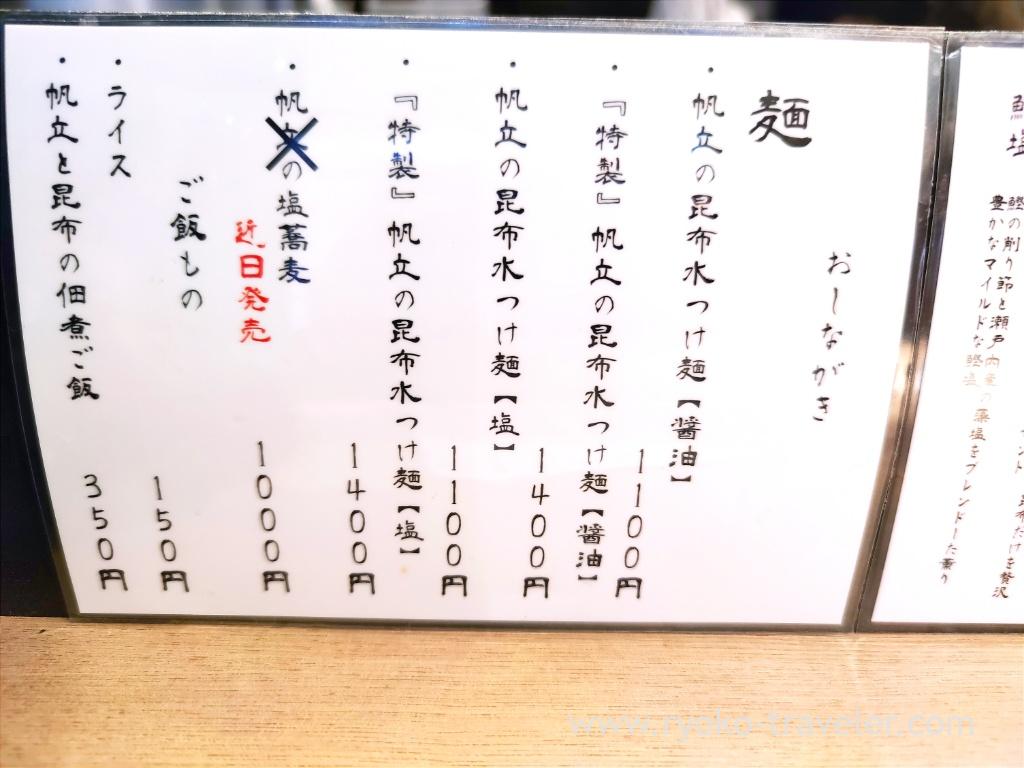 おしながき
麺
・帆立の昆布水つけ麺【醤油】
1100円
・『特製』帆立の昆布水つけ麺【醤油】
1400円
・帆立の昆布水つけ麺【塩】
1100円
・『特製』帆立の昆布水つけ麺【塩】
1400円
・帆立の塩蕎麦
近日発売
1000円
ご飯もの
・ライス
150円
・帆立と昆布の佃煮ご飯
350円
塩
鰹の削り節と瀬戸内産の藻塩をブレンドした薫り
豊かなマイルドな鰹塩
昆布だけを贅沢
www.ryoko-traveler.com